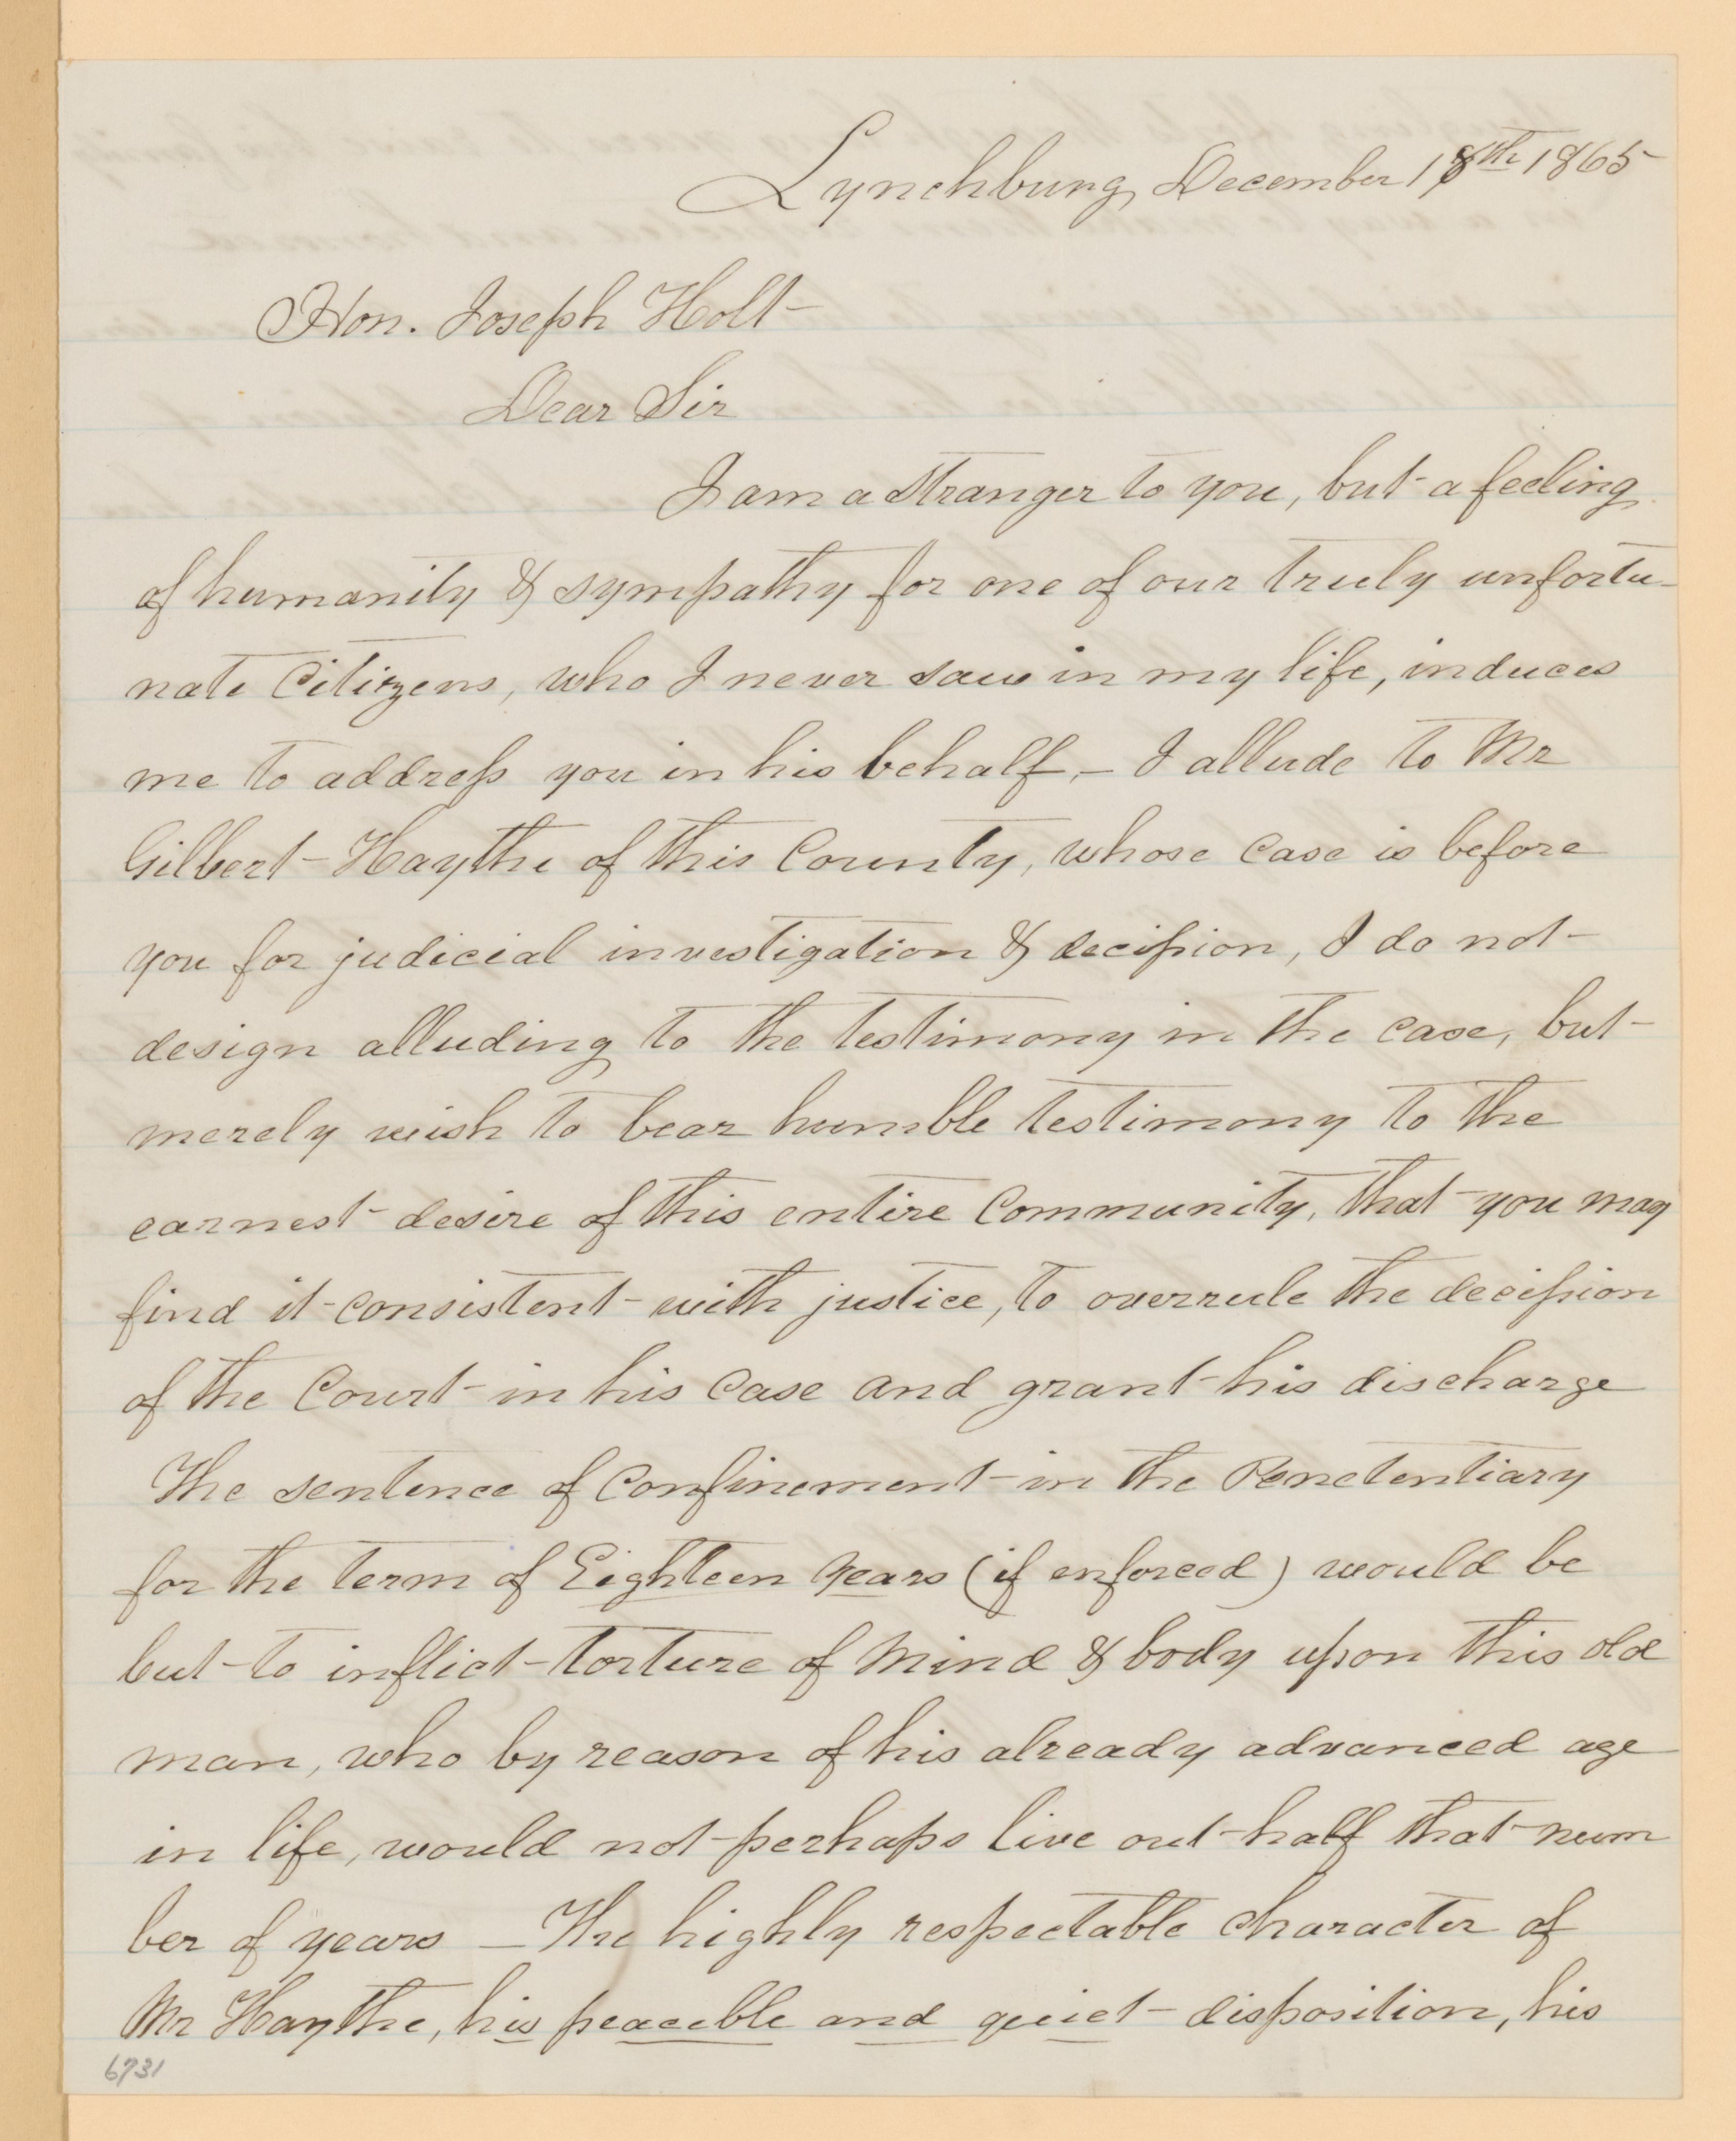 Lynchburg, December 18th 1865
Hon. Joseph Holt
Dear Sir
I am a stranger to you, but a feeling
of humanity & sympathy for one of our truly unfortu-
nate Citizens, who I never saw in my life, induces
me to address you in his behalf, - I allude to Mr
Gilbert Haythe of this County, whose case is before
you for judicial investigation & decission, I do not
design alluding to the testimony in the case, but
merely wish to bear humble testimony to the
earnest desire of this entire Community, that you may
find it consistent with justice, to overrule the decission
of the Court in his case and grant his discharge
The sentence of Confinement in the Penetentiary
for the term of Eighteen years (if enforced) would be
but to inflict torture of Mind & body upon this old
man, who by reason of his already advanced age
in life, would not perhaps live out half that num
ber of years — The highly respectable character of
Mr Haythe, his peaceble and quiet disposition, his
6731